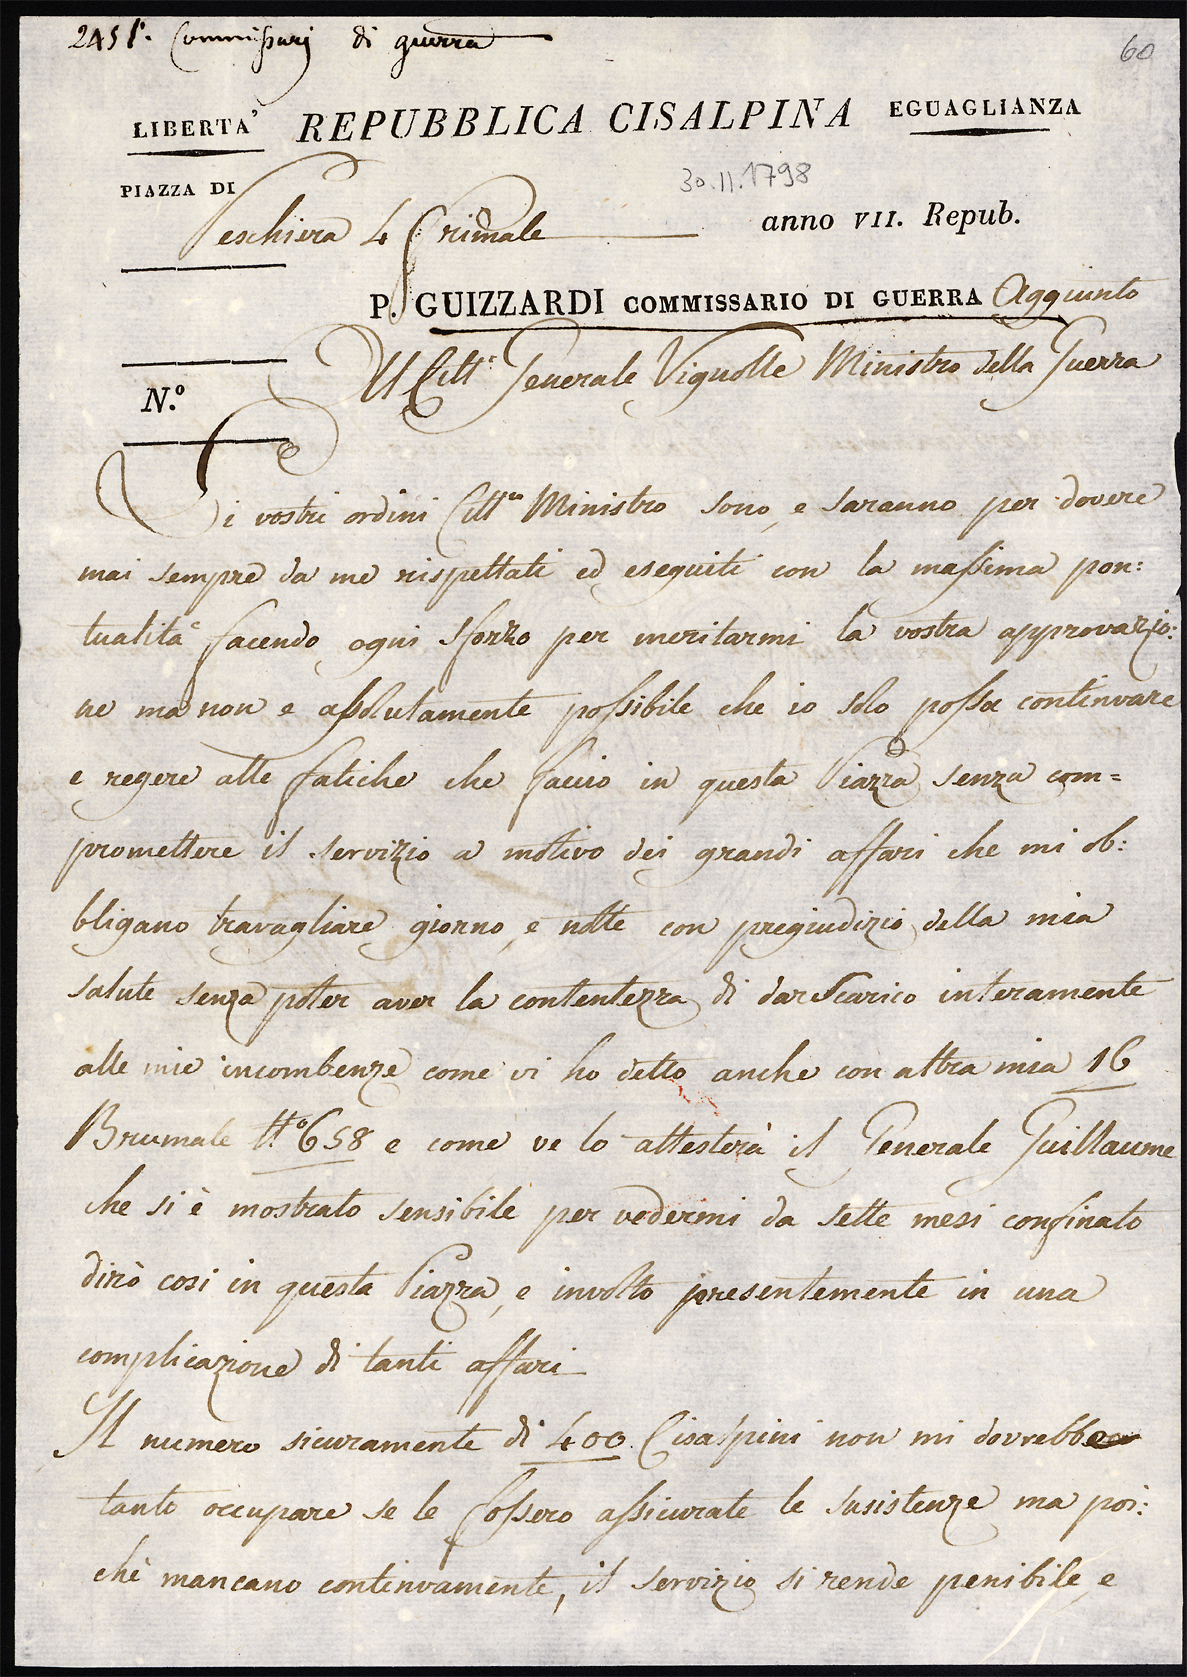 2451. Commissarj di guerra
60
LIBERTA' REPUBBLICA CISALPINA EGUAGLIANZA
30.11.1798
PIAZZA DI
Peschiera 4 Frimale anno VII. Repub.
P. GUIZZARDI COMMISSARIO DI GUERRA Aggiunto
Al Citt.e Generale Vignolle Ministro della Guerra
N.º
i vostri ordini Citt.n Ministro sono, e saranno per dovere
mai sempre da me rispettati ed eseguiti con la massima pon:
tualità facendo ogni sforzo per meritarmi la vostra approvazio:
ne ma non e assolutamente possibile che io solo possa continvare
e regere alle fatiche che faccio in questa Piazza senza com=
promettere il servizio a motivo dei grandi affari che mi ob:
bligano travagliare giorno, e notte con pregiudizio della mia
salute senza poter aver la contentezza di dar scarico interamente
alle mie incombenze come vi ho detto anche con altra mia 16
Brumale N.º 658 e come ve lo attesterà il Generale Guillaume
che si è mostrato sensibile per vedermi da sette mesi confinato
dirò cosi in questa Piazza, e involto presentemente in una
complicazione di tanti affari
Il numero sicuramente di 400 Cisalpini non mi dovrebbe
tanto occupare se le fossero assicurate le susistenze ma poi:
chè mancano continvamente, il servizio si rende penibile, e